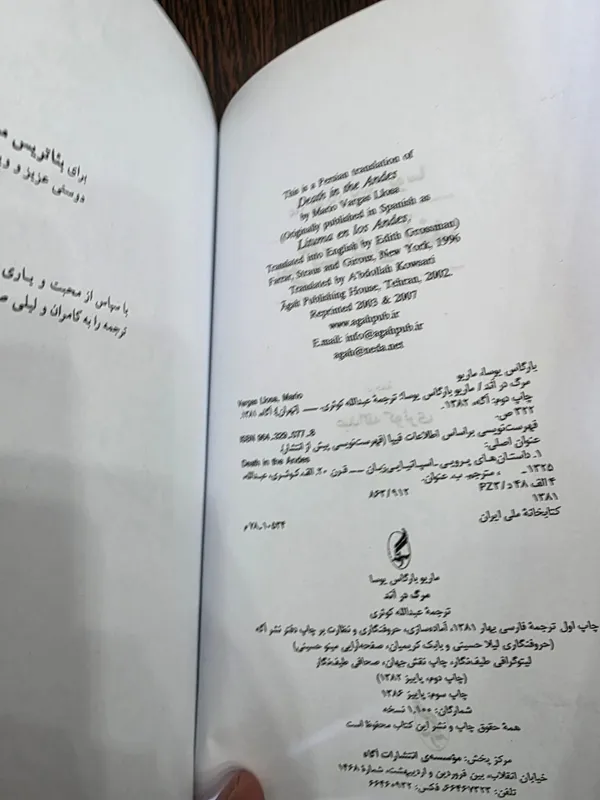 This is a Persian translation of
Death in the Andes
by Mario Vargas Llosa
(Originally published in Spanish as
Lituma en los Andes,
Translated into English by Edith Grossman)
Farrar, Straus and Giroux, New York, 1996
Translated by A'bdollah Kowsari
Āgah Publishing House, Tehran, 2002.
Reprinted 2003 & 2007
www.agahpub.ir
E.mail: info@agahpub.ir
agah@neda.net
یارگاس یوسا، ماریو
Vargas Llosa, Mario
مرگ در آند / ماریو بارگاس یوسا؛ ترجمهٔ عبدالله کوثری. ــ [تهران]: آگاه، ۱۳۸۱.
چاپ دوم: آگاه، ۱۳۸۲.
۳۲۲ ص.
ISBN 964_329_077_8
فهرست‌نویسی براساس اطلاعات فیپا (فهرست‌نویسی پیش از انتشار).
عنوان اصلی:
Death in the Andes
۱. داستان‌های پرویی ـ اسپانیایی‌زبان ــ قرن ۲۰. الف. کوثری، عبدالله
۱۳۲۵ـ ، مترجم. ب. عنوان.
۴ الف ۴۸ د/PZ۳
۸۶۳/۹۱۲
۱۳۸۱
کتابخانهٔ ملی ایران
۷۸ـ۱۰۵۳۴ م
ماریو بارگاس یوسا
مرگ در آند
ترجمهٔ عبدالله کوثری
چاپ اول ترجمهٔ فارسی بهار ۱۳۸۱، آماده‌سازی، حروفنگاری و نظارت بر چاپ دفتر نشر آگه
(حروفنگاری لیلا حسینی و بابک کریمیان، صفحه‌آرایی مینو حسینی)
لیتوگرافی طیف‌نگار، چاپ نقش‌جهان، صحافی طیف‌نگار
(چاپ دوم، پاییز ۱۳۸۲)
چاپ سوم: پاییز ۱۳۸۶
شمارگان: ۱,۱۰۰ نسخه
همهٔ حقوق چاپ و نشر این کتاب محفوظ است
مرکز پخش: مؤسسه‌ی انتشارات آگاه
خیابان انقلاب، بین فروردین و اردیبهشت، شمارهٔ ۱۴۶۸
تلفن: ۶۶۴۶۷۳۲۳، فکس: ۶۶۴۶۰۹۳۲
برای بئاتریس
دوستی عزیز و
با سپاس از محبت و یاری
ترجمه را به کامران و لیلی